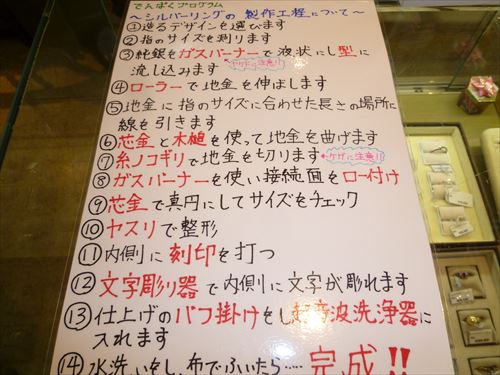 でんぱくプログラム
～シルバーリングの製作工程について～
①造るデザインを選びます
②指のサイズを測ります
③純銀をガスバーナーで液状にし型に
流し込みます ヤケドに注意!!
④ローラーで地金を伸ばします
⑤地金に指のサイズに合わせた長さの場所に
線を引きます
⑥芯金と木槌を使って地金を曲げます
⑦糸ノコギリで地金を切ります ケガに注意!!
⑧ガスバーナーを使い接続面をロー付け
⑨芯金で真円にしてサイズをチェック
⑩ヤスリで整形
⑪内側に刻印を打つ
⑫文字彫り器で内側に文字が彫れます
⑬仕上げのバフ掛けをし超音波洗浄器に
入れます
⑭水洗いをし、布でふいたら……完成!!